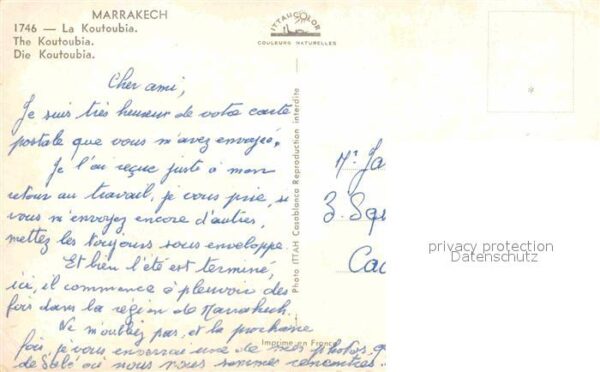 MARRAKECH
1746 — La Koutoubia.
The Koutoubia.
Die Koutoubia.
ITTAHCOLOR
COULEURS NATURELLES
Cher ami,
Je suis très heureux de votre carte
postale que vous m'avez envoyée.
Je l'ai reçue juste à mon
retour au travail, je vous prie, si
vous m'envoyez encore d'autres,
mettez les toujours sous enveloppe.
Et bien l'été est terminé,
ici, il commence à pleuvoir des
fois dans la région de Marrakech.
Ne m'oubliez pas, et la prochaine
fois, je vous enverrai une de mes photos,
de Salé où nous nous sommes rencontrés.
Photo ITTAH Casablanca Reproduction interdite
Imprimé en France
Mr Ja
3. Squ
Cae
privacy protection
Datenschutz